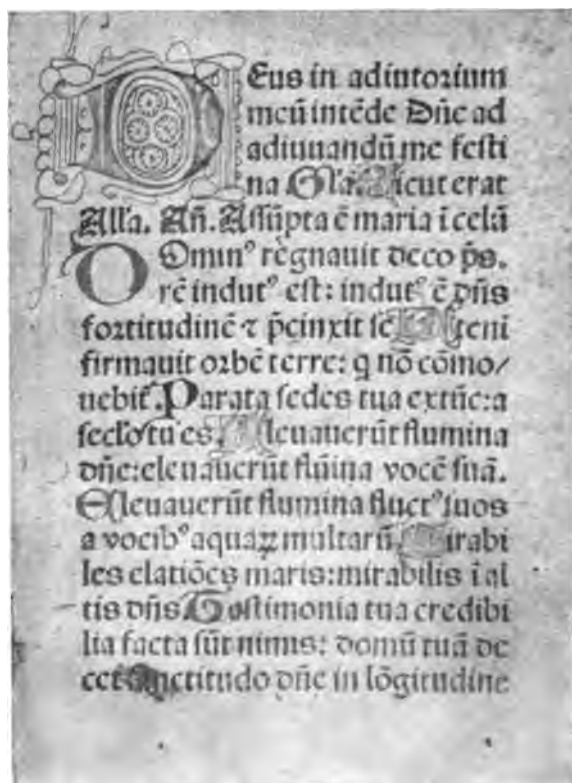 Deus in adiutorium
meū intēde Dn̄e ad
adiuuandū me festi
na Gl'a. Sicut erat
All'a. An̄. Assūpta ē maria ī celū
Dominꝰ regnauit deco p̄s.
rē indutꝰ est: indutꝰ ē dn̄s
fortitudinē ⁊ p̄cinxit se Eteni
firmauit orbē terre: q nō cōmo/
uebit̄. Parata sedes tua ex tūc: a
sec̄lo tu es. Eleuauerūt flumina
dn̄e: eleuauerūt flūina vocē suā.
Eleuauerūt flumina fluctꝰ suos
a vocibꝰ aquaꝝ multarū. Mirabi
les elatiōes maris: mirabilis ī al
tis dn̄s Testimonia tua credibi
lia facta sūt nimis: domū tuā de
cet sanctitudo dn̄e in lōgitudine